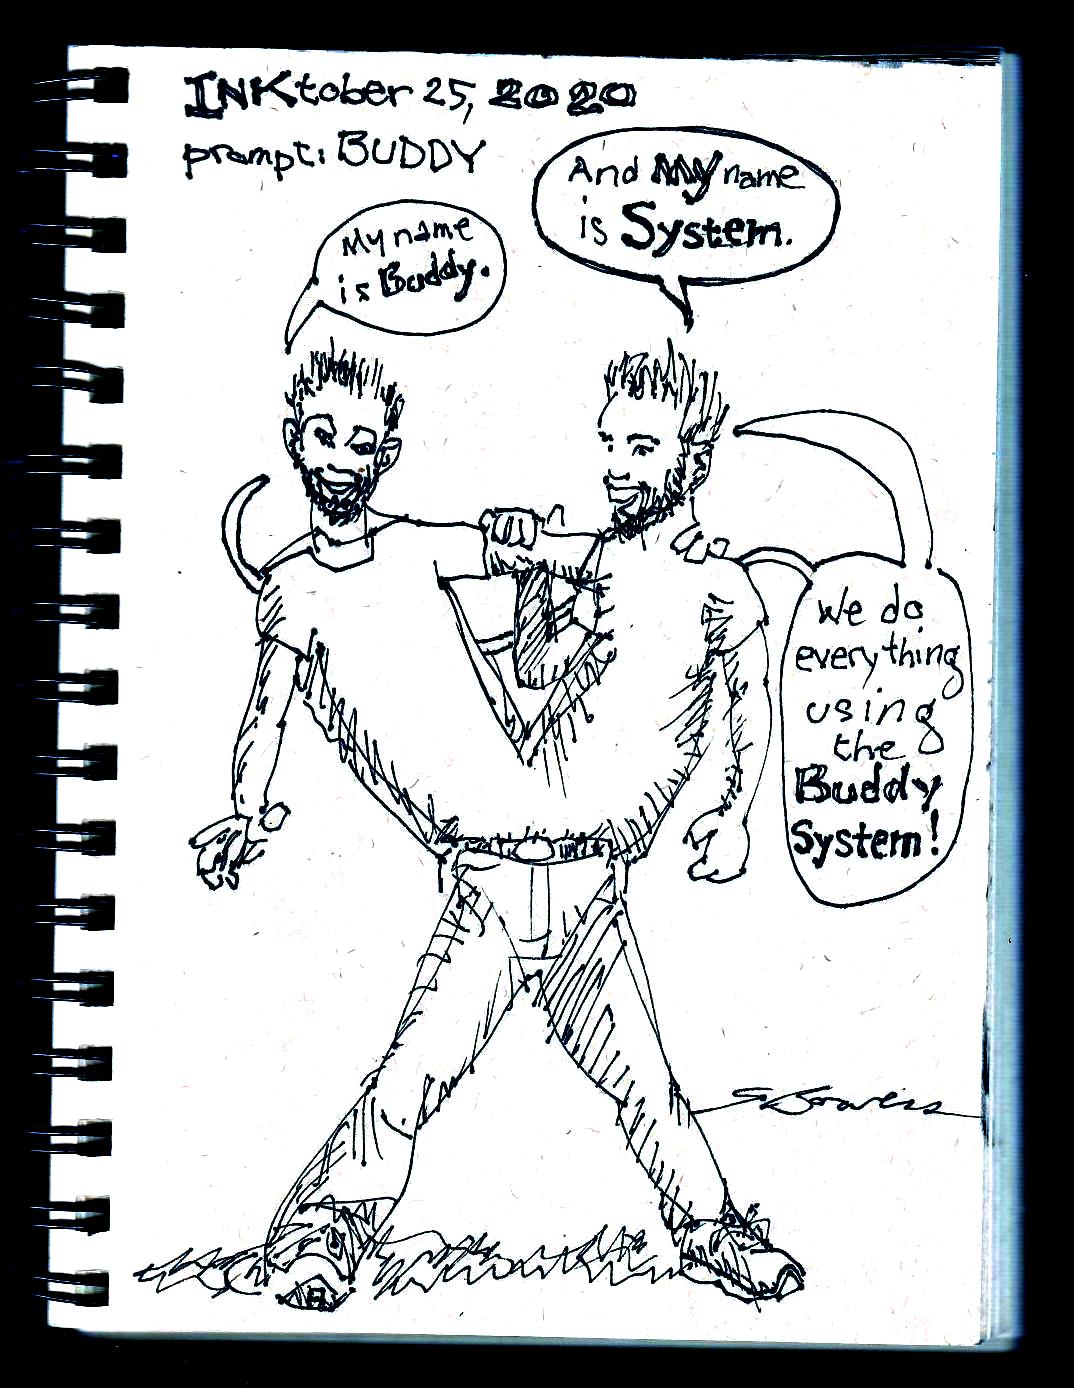 INKtober 25, 2020
prompt: BUDDY
My name
is Buddy.
And My name
is System.
We do
everything
using
the
Buddy
System!